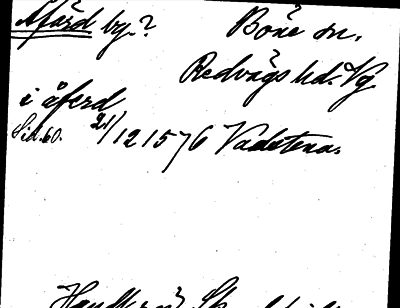 Åfärd by.? Böne sn.
Redvägs hd. Vg.
i åferd
Sid. 60. 21/12 1576 Vadstena.